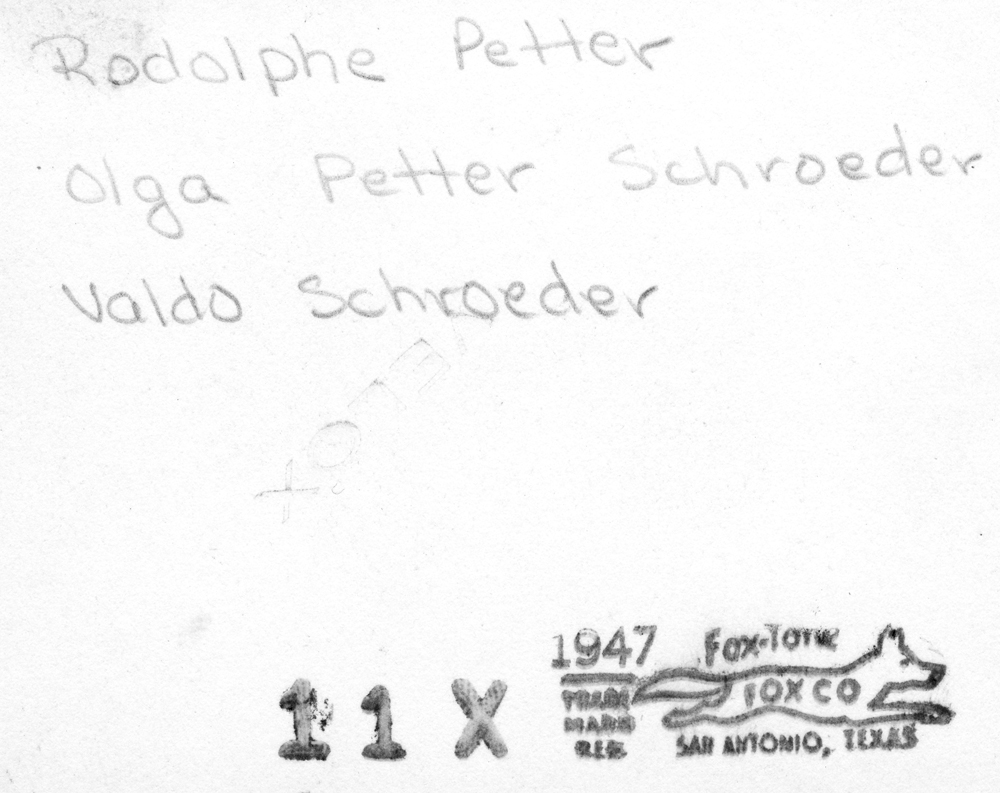 Rodolphe Petter
Olga Petter Schroeder
Valdo Schroeder
11 X
1947
TRADE
MARK
REG.
Fox-Tone
FOX CO
SAN ANTONIO, TEXAS